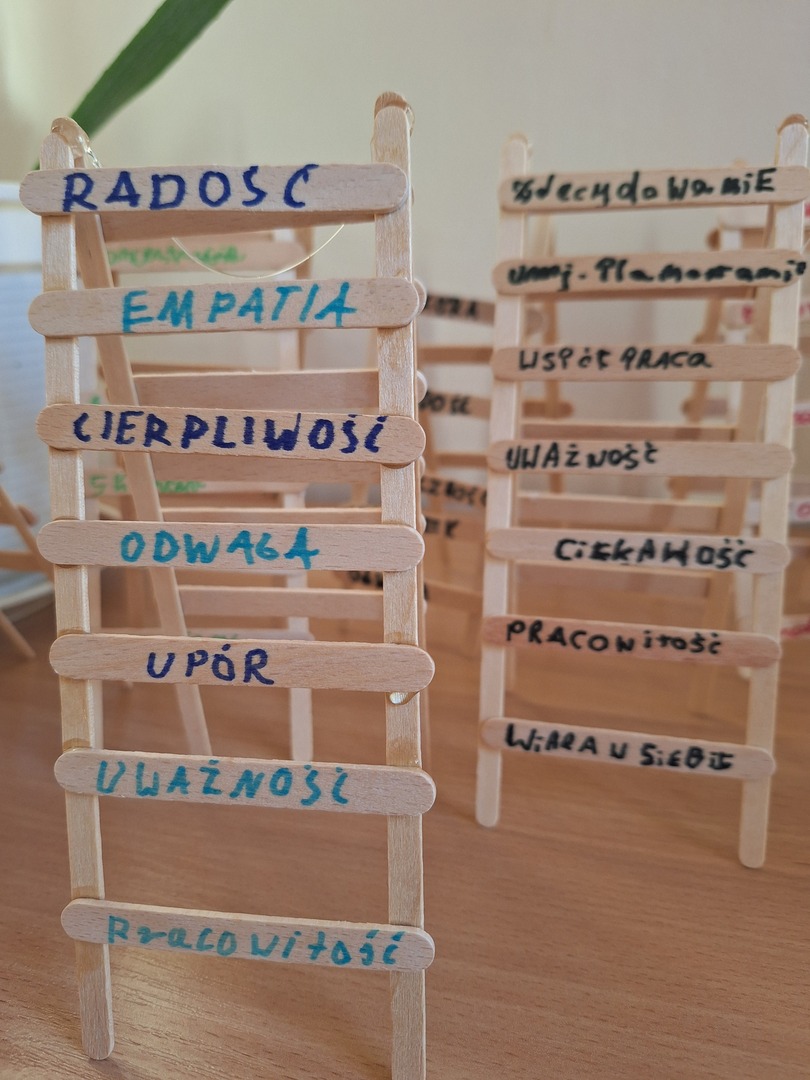 RADOŚĆ
EMPATIA
CIERPLIWOŚĆ
ODWAGA
UPÓR
UWAŻNOŚĆ
Pracowitość
ZdecydowaniE
umj. Planowania
WSPÓŁ PRACA
UWAŻNOŚĆ
CiEKAWOŚĆ
PRACOWitOŚĆ
WiARA W SiEBiE